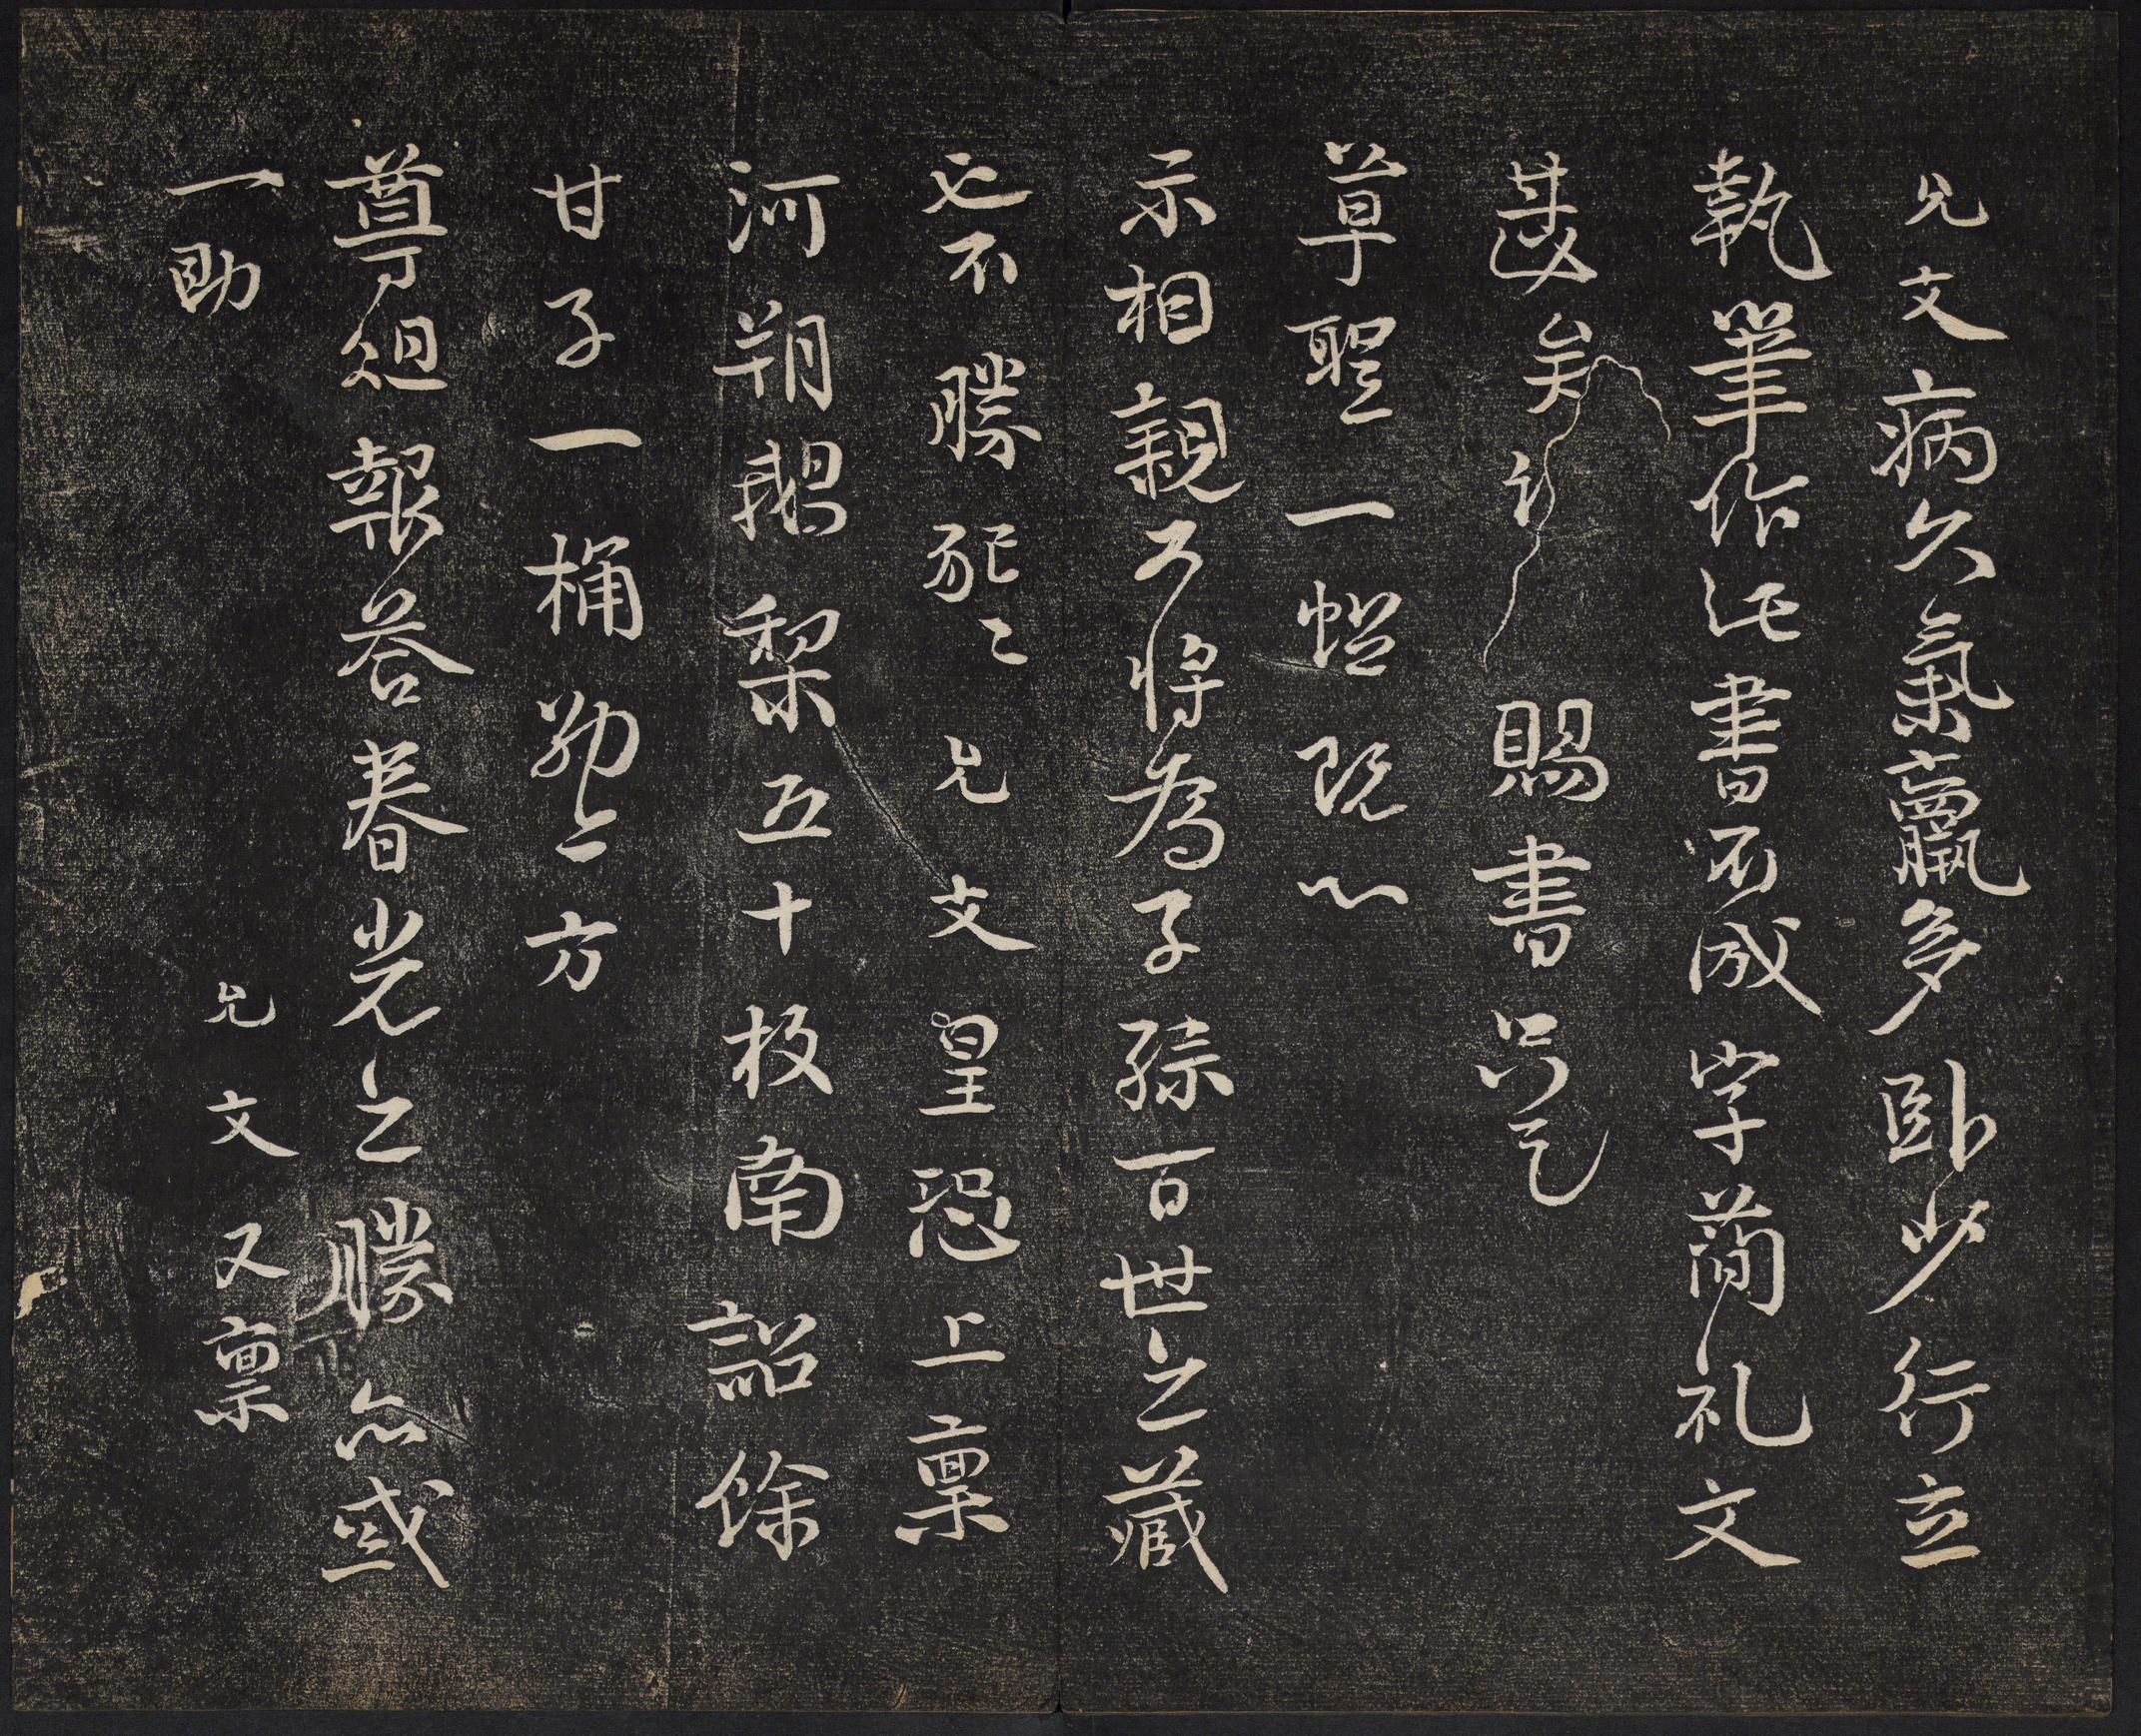 允文病久氣羸多卧少行立
執筆作此書不成字簡礼文
甚矣 賜書
草聖一
示相親 將為子孫百世之藏
不勝 允文皇恐上稟
河朔鵝梨五十枚南詔餘
甘子一桶 二方
尊俎報答春光之勝 或
一助 允文又稟